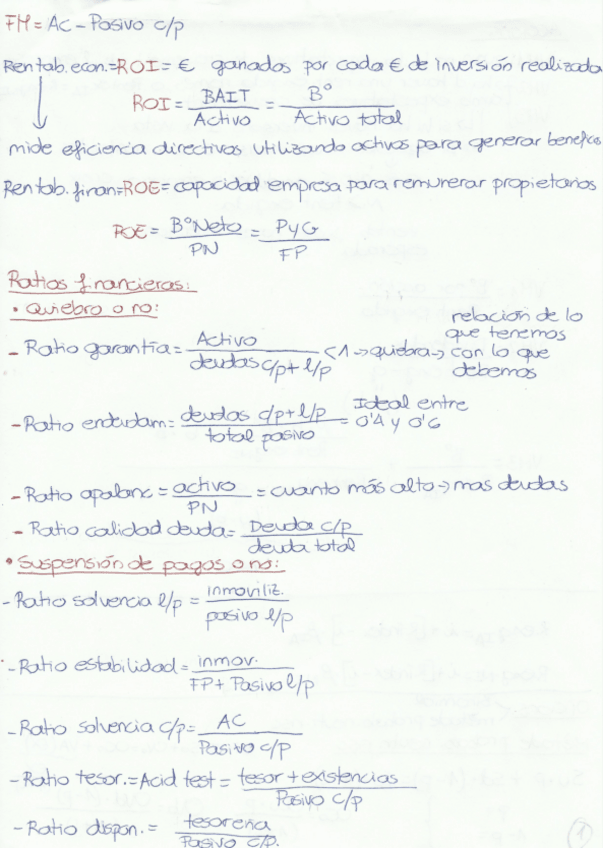 FM = AC - Pasivo c/p
Rentab. econ. = ROI = € ganados por cada € de inversión realizada
ROI = BAIT / Activo = Bº / Activo total
mide eficiencia directivos utilizando activos para generar benefics
Rentab. finan = ROE = capacidad empresa para remunerar propietarios
ROE = Bº Neto / PN = PyG / FP
Ratios financieros:
• Quiebra o no:
- Ratio garantía = Activo / deudas c/p + l/p < 1 → quiebra → relación de lo que tenemos con lo que debemos
- Ratio endeudam = deudas c/p + l/p / total pasivo = Ideal entre 0'4 y 0'6
- Ratio apalanc = activo / PN = cuanto más alto → mas deudas
- Ratio calidad deuda = Deuda c/p / deuda total
• Suspensión de pagos o no:
- Ratio solvencia l/p = inmoviliz. / pasivo l/p
- Ratio estabilidad = inmov. / FP + Pasivo l/p
- Ratio solvencia c/p = AC / Pasivo c/p
- Ratio tesor. = Acid test = tesor + existencias / Pasivo c/p
- Ratio dispon. = tesorería / Pasivo c/p.
1